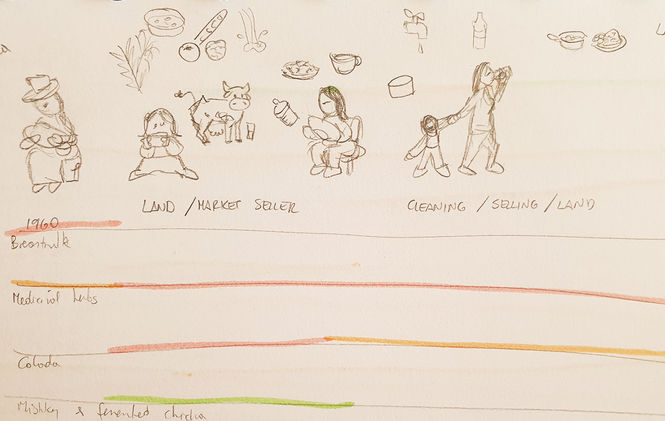 LAND / MARKET SELLER
CLEANING / SELLING / LAND
1960
Breastmilk
Medicinal herbs
Colada
Mishky & fermented chicha